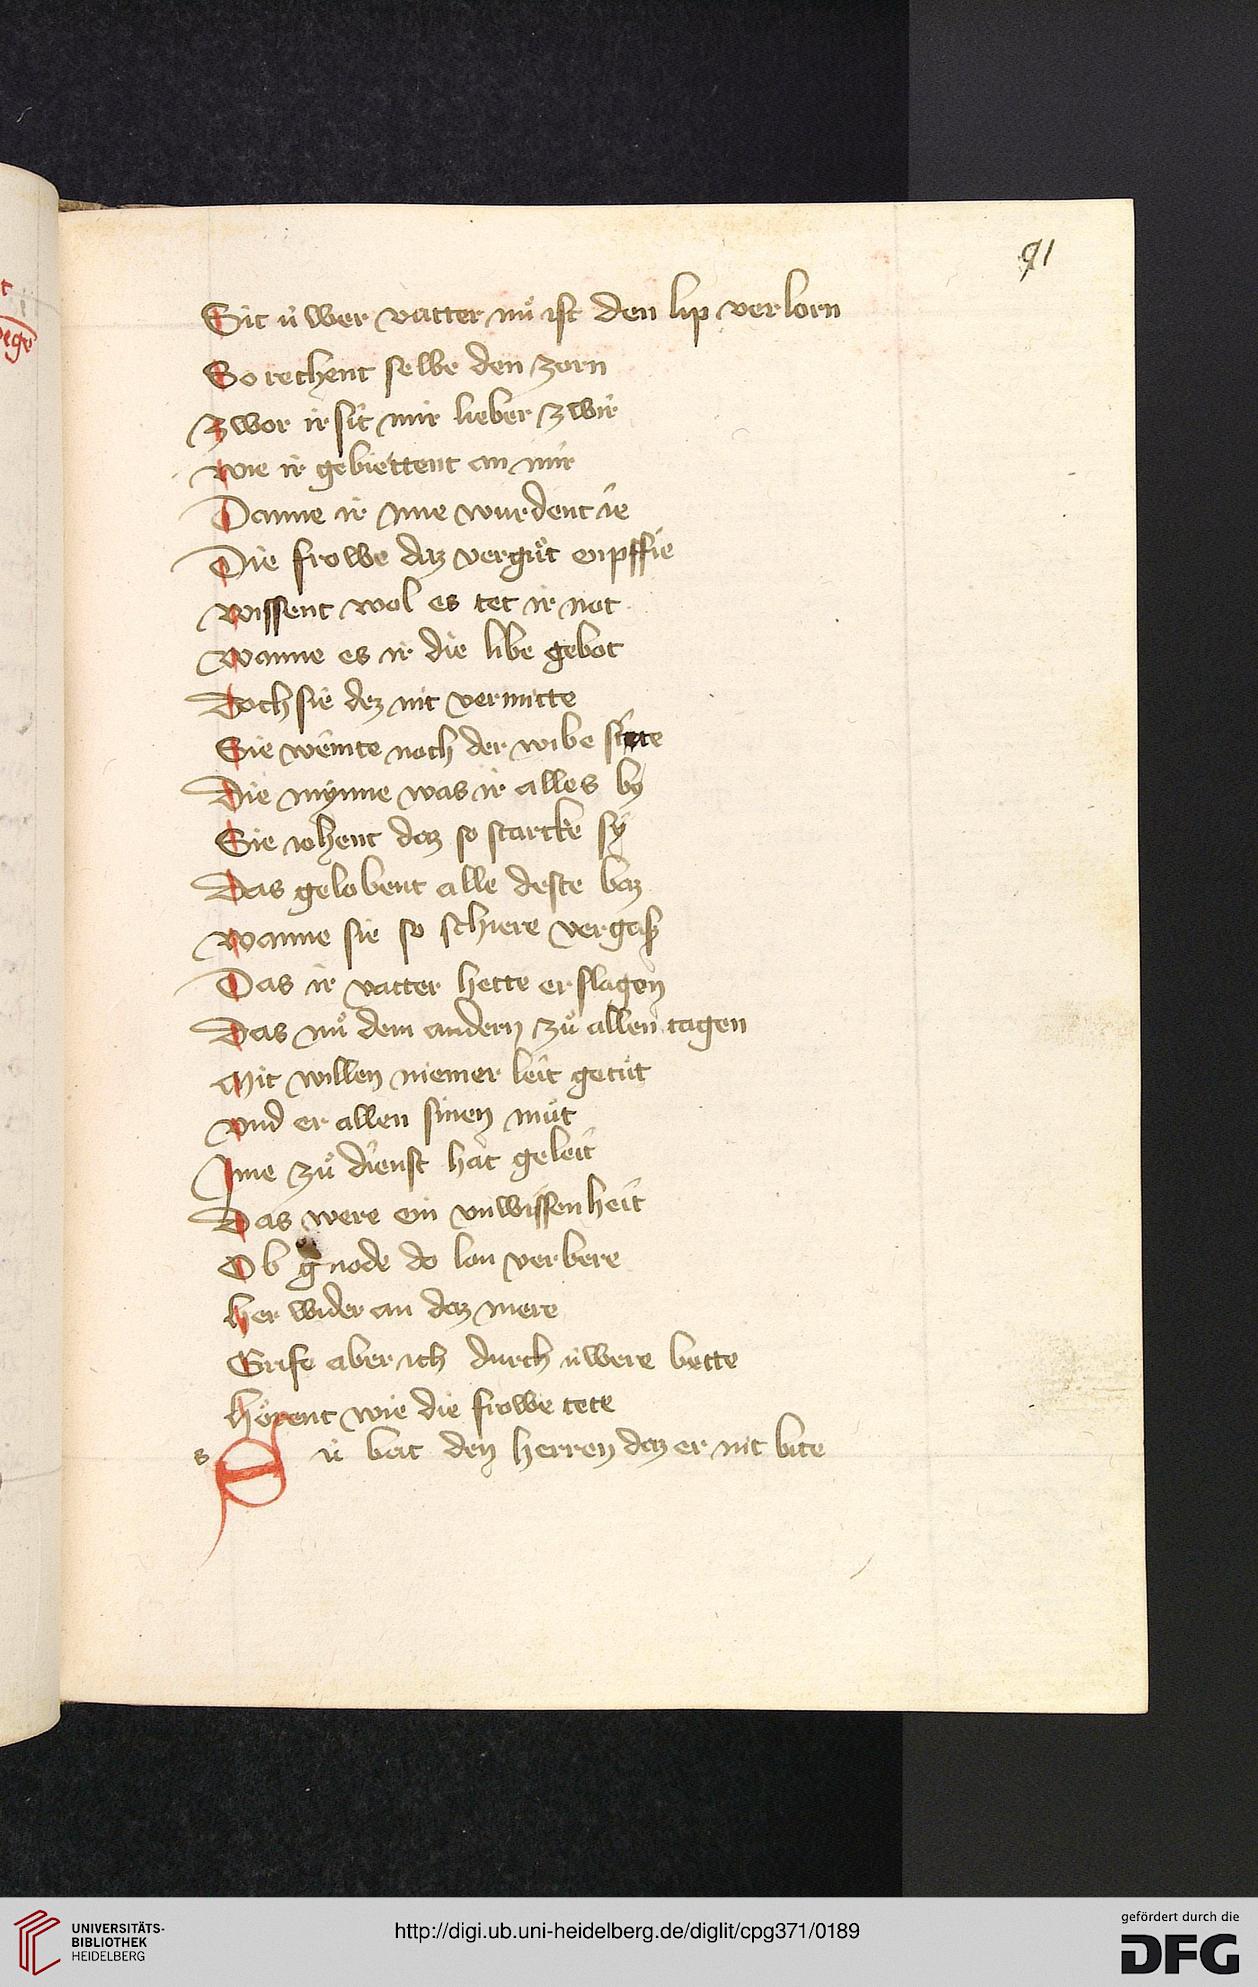 91
Sit úwer vatter nuͦ ist den lip verlorn
So rechent selbe den zorn
Zwor ir sit mir lieber zwir
Wie ir gebiettent an mir
Danne ir ime wurdent ie
Die frowe daz verguͦt enpffie
Wissent wol es tet ir not
Wanne es ir die libe gebot
Doch sie dez nit vermitte
Sie weinte noch der wibe sitte
Die mynne was ir alles by
Sie iohent daz so starcke sy
Das gelobent alle deste baz
Wanne sie so schiere vergaß
Das ir vatter hette erslagen
Das nuͦ dem andern zuͦ allen tagen
Mit willen niemer leit getuͦt
Vnd er allen sinen muͦt
Ime zuͦ dienst hat geleit
Das were ein vnwissenheit
Ob gnode do lon verbere
Her wider an daz mere
Grife aber ich durch úwere bette
Hoͤrent wie die frowe tete
s Sú bat den herren daz er nit bite
t
UNIVERSITÄTS-
BIBLIOTHEK
HEIDELBERG
http://digi.ub.uni-heidelberg.de/diglit/cpg371/0189
gefördert durch die
DFG